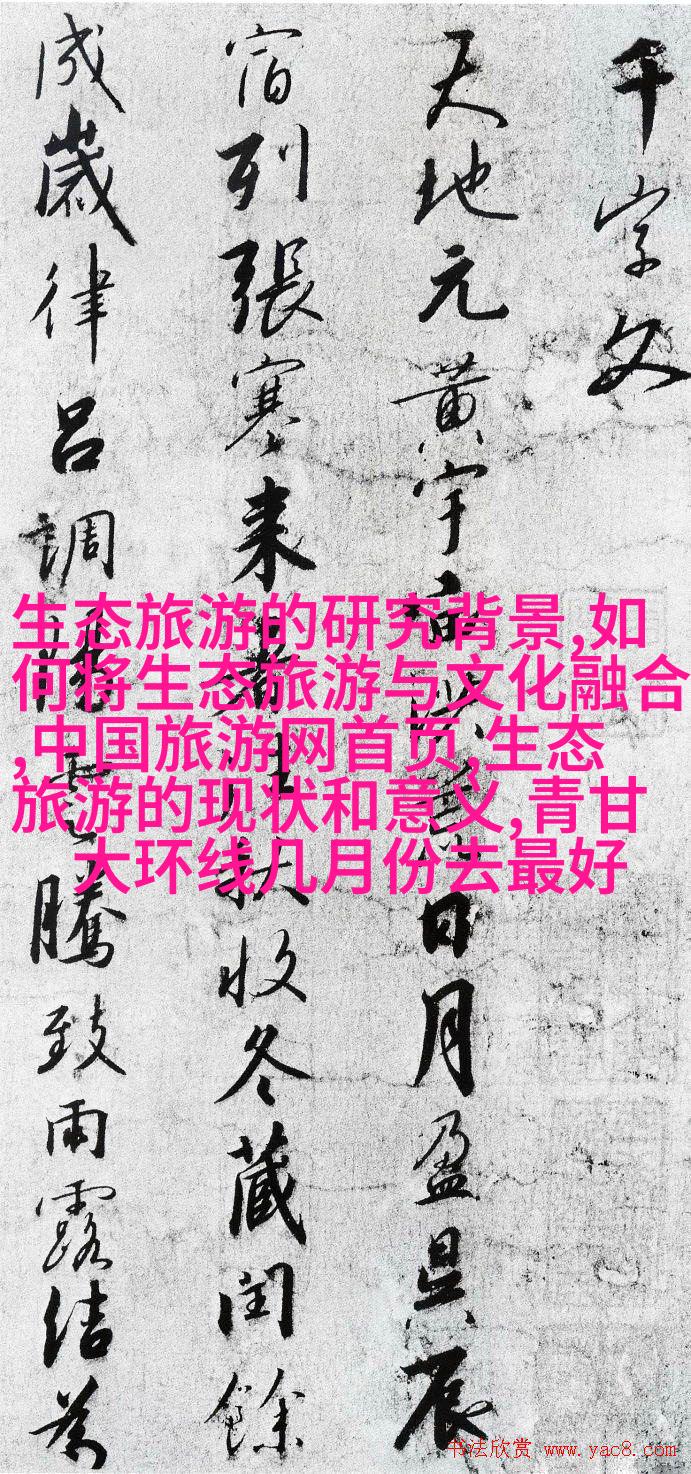 千字文
天地元黄宇宙洪荒日月盈昃辰
宿列張寒来暑往秋收冬藏閏餘
成歲律吕調陽雲騰致雨露結為
生态旅游的研究背景,如
何将生态旅游与文化融合
,中国旅游网首页,生态
旅游的现状和意义,青甘
大环线几月份去最好
书法欣赏 www.yac8.com